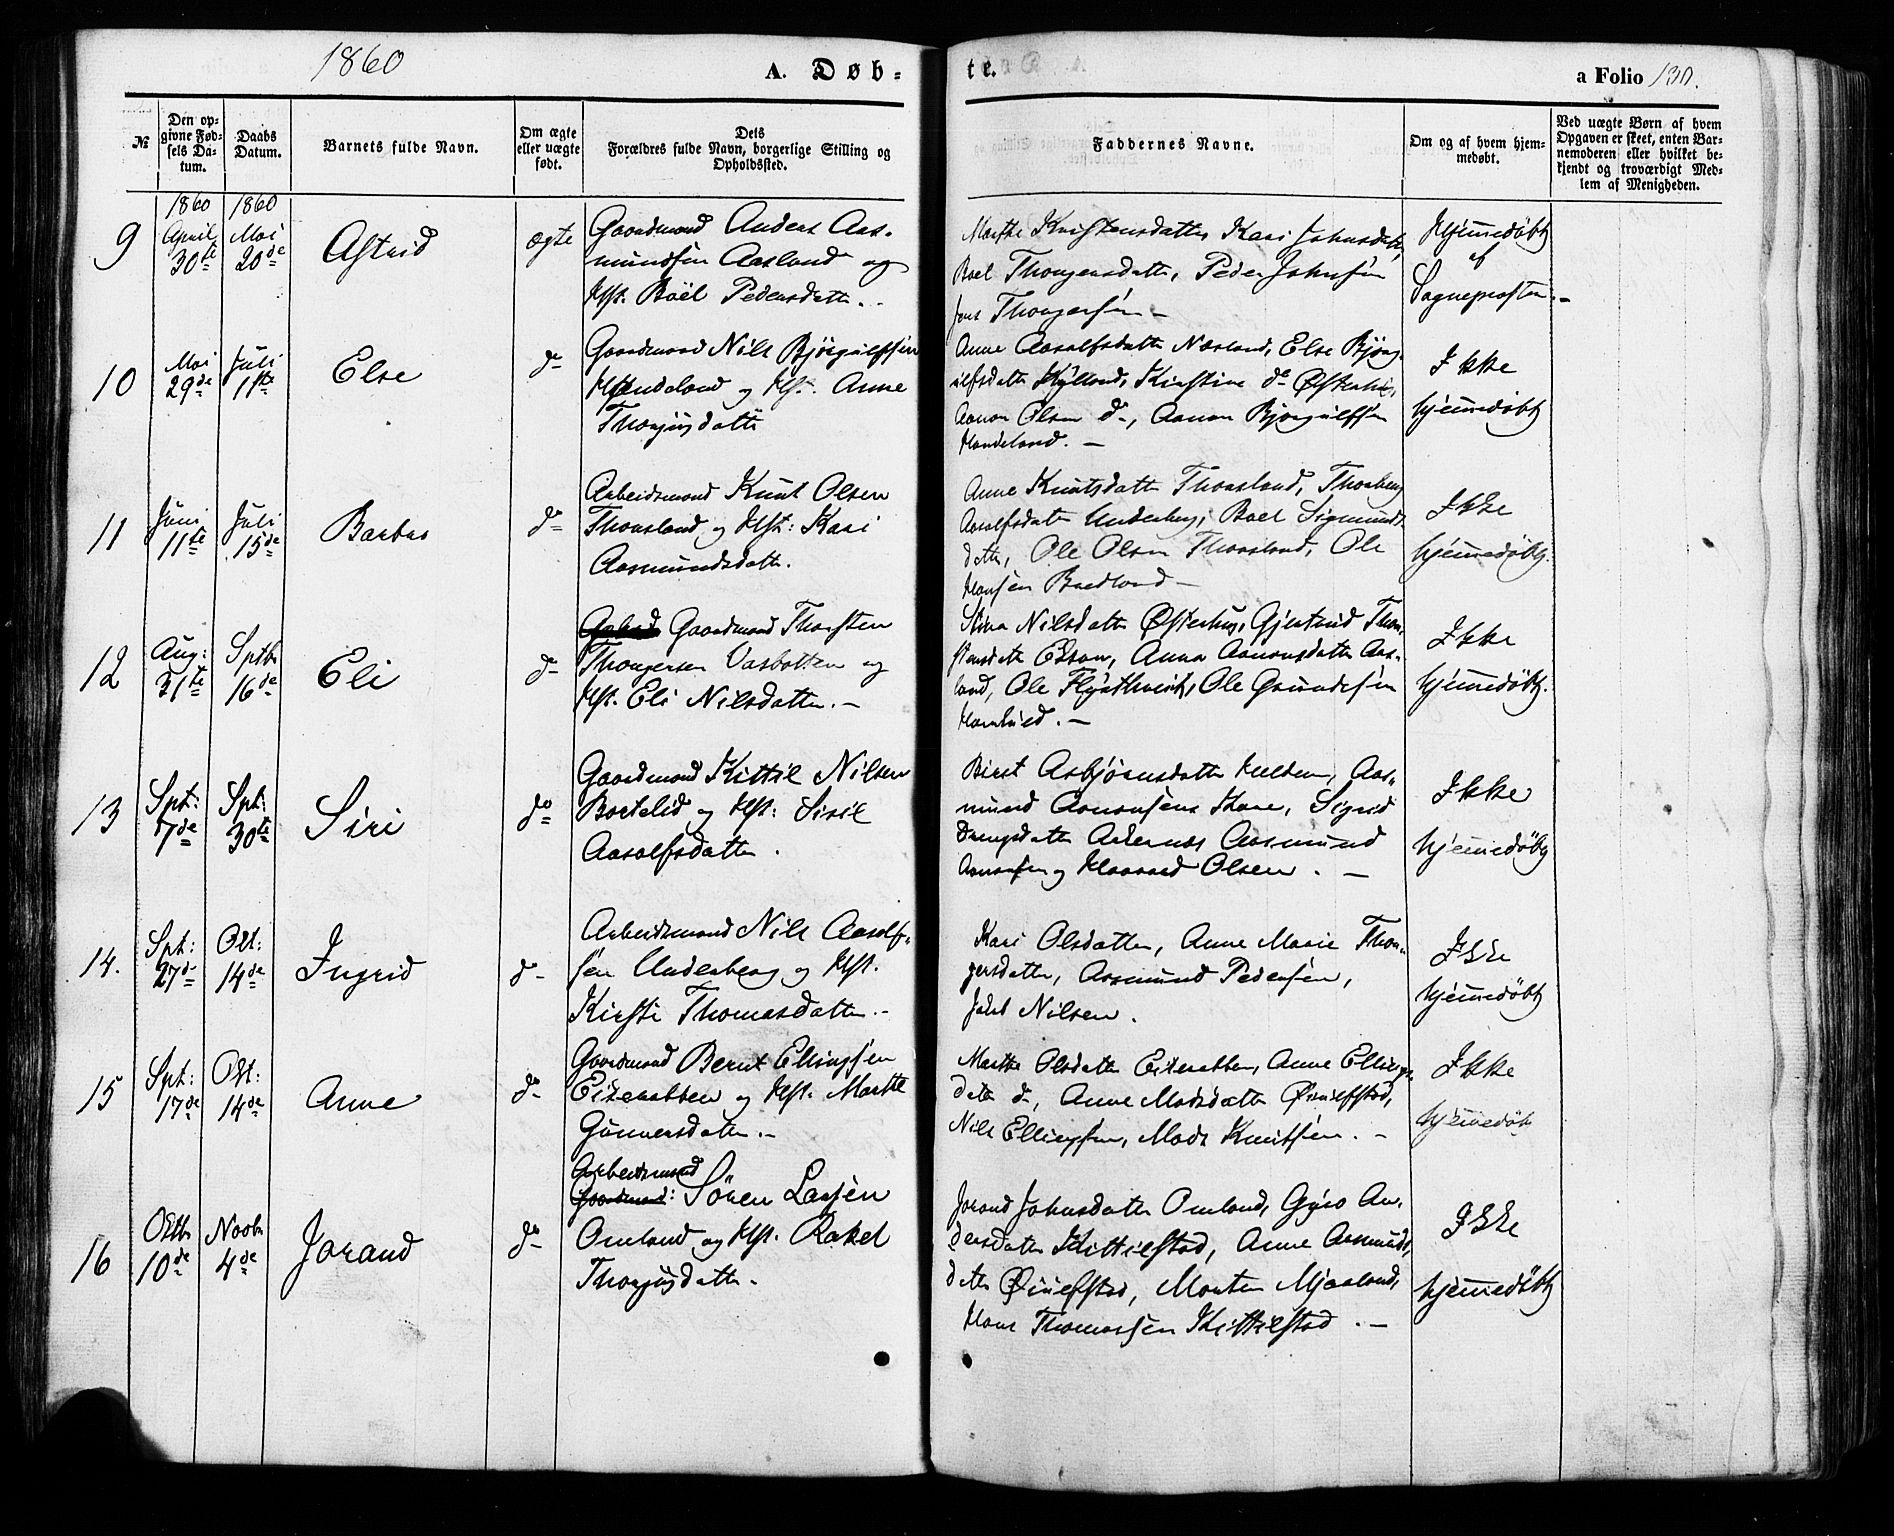 1860
A. Døb-
te.
a Folio 130.
№
Den op-
givne Fød-
sels Da-
tum.
Daabs
Datum.
Barnets fulde Navn.
Om ægte
eller uægte
født.
Dets
Forældres fulde Navn, borgerlige Stilling og
Opholdssted.
Faddernes Navne.
Om og af hvem hjem-
medøbt.
Ved uægte Børn af hvem
Opgaven er skeet, enten Bar-
nemoderen eller hvilket be-
kjendt og troværdigt Med-
lem af Menigheden.
1860
1860
9
April
30te
Mai
20de
Astrid
ægte
Gaardmand Anders Aas-
mundsen Aasland og
Hst. Boel Pedersdatter.
Marthe Kristensdatter, Kari Johnsdatter,
Boel Thorgersdatter, Peder Johnsen
Jens Thorgersen
Hjemmedøbt
af
Sognepresten.
10
Mai
29de
Juli
11te
Else
do
Gaardmand Nils Bjørgulfsen
Handeland og Hst. Anne
Thorjusdatter
Anne Aasulfsdatter Næsland, Else Bjørg-
ulfsdatter Kylland, Kirstine do Østerhus,
Aanon Olsen do, Aanon Bjørgulfsen
Handeland.
Ikke
hjemmedøbt
11
Juni
11te
Juli
15de
Barbro
do
Arbeidsmand Knut Olsen
Thorsland og Hst: Kari
Aasmundsdatter.
Anne Knutsdatter Thorsland, Thorberg
Aasulfsdatter Underberg, Boel Sigmunds-
datter, Ole Olsen Thorsland, Ole
Hansen Bredland
Ikke
hjemmedøbt.
12
Aug:
31te
Sptb.
16de
Eli
do
Gaardmand Thorsten
Thorgersen Vasbotten og
Hst. Eli Nilsdatter.
Stina Nilsdatter Østerhus, Gjertrud Thor-
stensdatter, Anna Aanonsdatter Aas-
land, Ole, Ole Gundersen
Ikke
hjemmedøbt.
13
Spt:
7de
Spt:
30te
Siri
do
Gaardmand Kittil Nilsen
Bortelid og Hst: Siril
Aasulfsdatter.
Biret Asbjørnsdatter, Aas-
mund Aanonsens Kone, Sigrid
Drengsdatter Aakernes Aasmund
Aanonsen og Haavard Olsen.
Ikke
hjemmedøbt
14.
Spt:
27de
Okt:
14de
Ingrid
do
Arbeidsmand Nils Aasulf-
sen Underberg og Hst.
Kirsti Thomasdatter.
Kari Olsdatter, Anne Marie Thor-
gersdatter, Aasmund Pedersen,
Nilsen.
Ikke
hjemmedøbt
15
Spt:
17de
Okt:
14de
Anne
do
Gaardmand Bernt Ellingsen
Eikerabben og Hst. Marthe
Gunnersdatter.
Marthe Olsdatter Eikerabben, Anne Ellings-
datter do, Anne Madsdatter Øiulfstad,
Nils Ellingsen, Mads Knutsen.
Ikke
hjemmedøbt
16
Oktb.
10de
Novbr.
4de
Jorand
do
Arbeidsmand
Gaardmand: Sören Larsen
Omland og Hst. Rakel
Thorjusdatter.
Jorand Johnsdatter Omland, Gyro An-
dersdatter Kittilstad, Anne Aasmunds-
datter Øiulfstad, Morten Mjaaland,
Hans Thomassen Kittilstad.
Ikke
hjemmedøbt